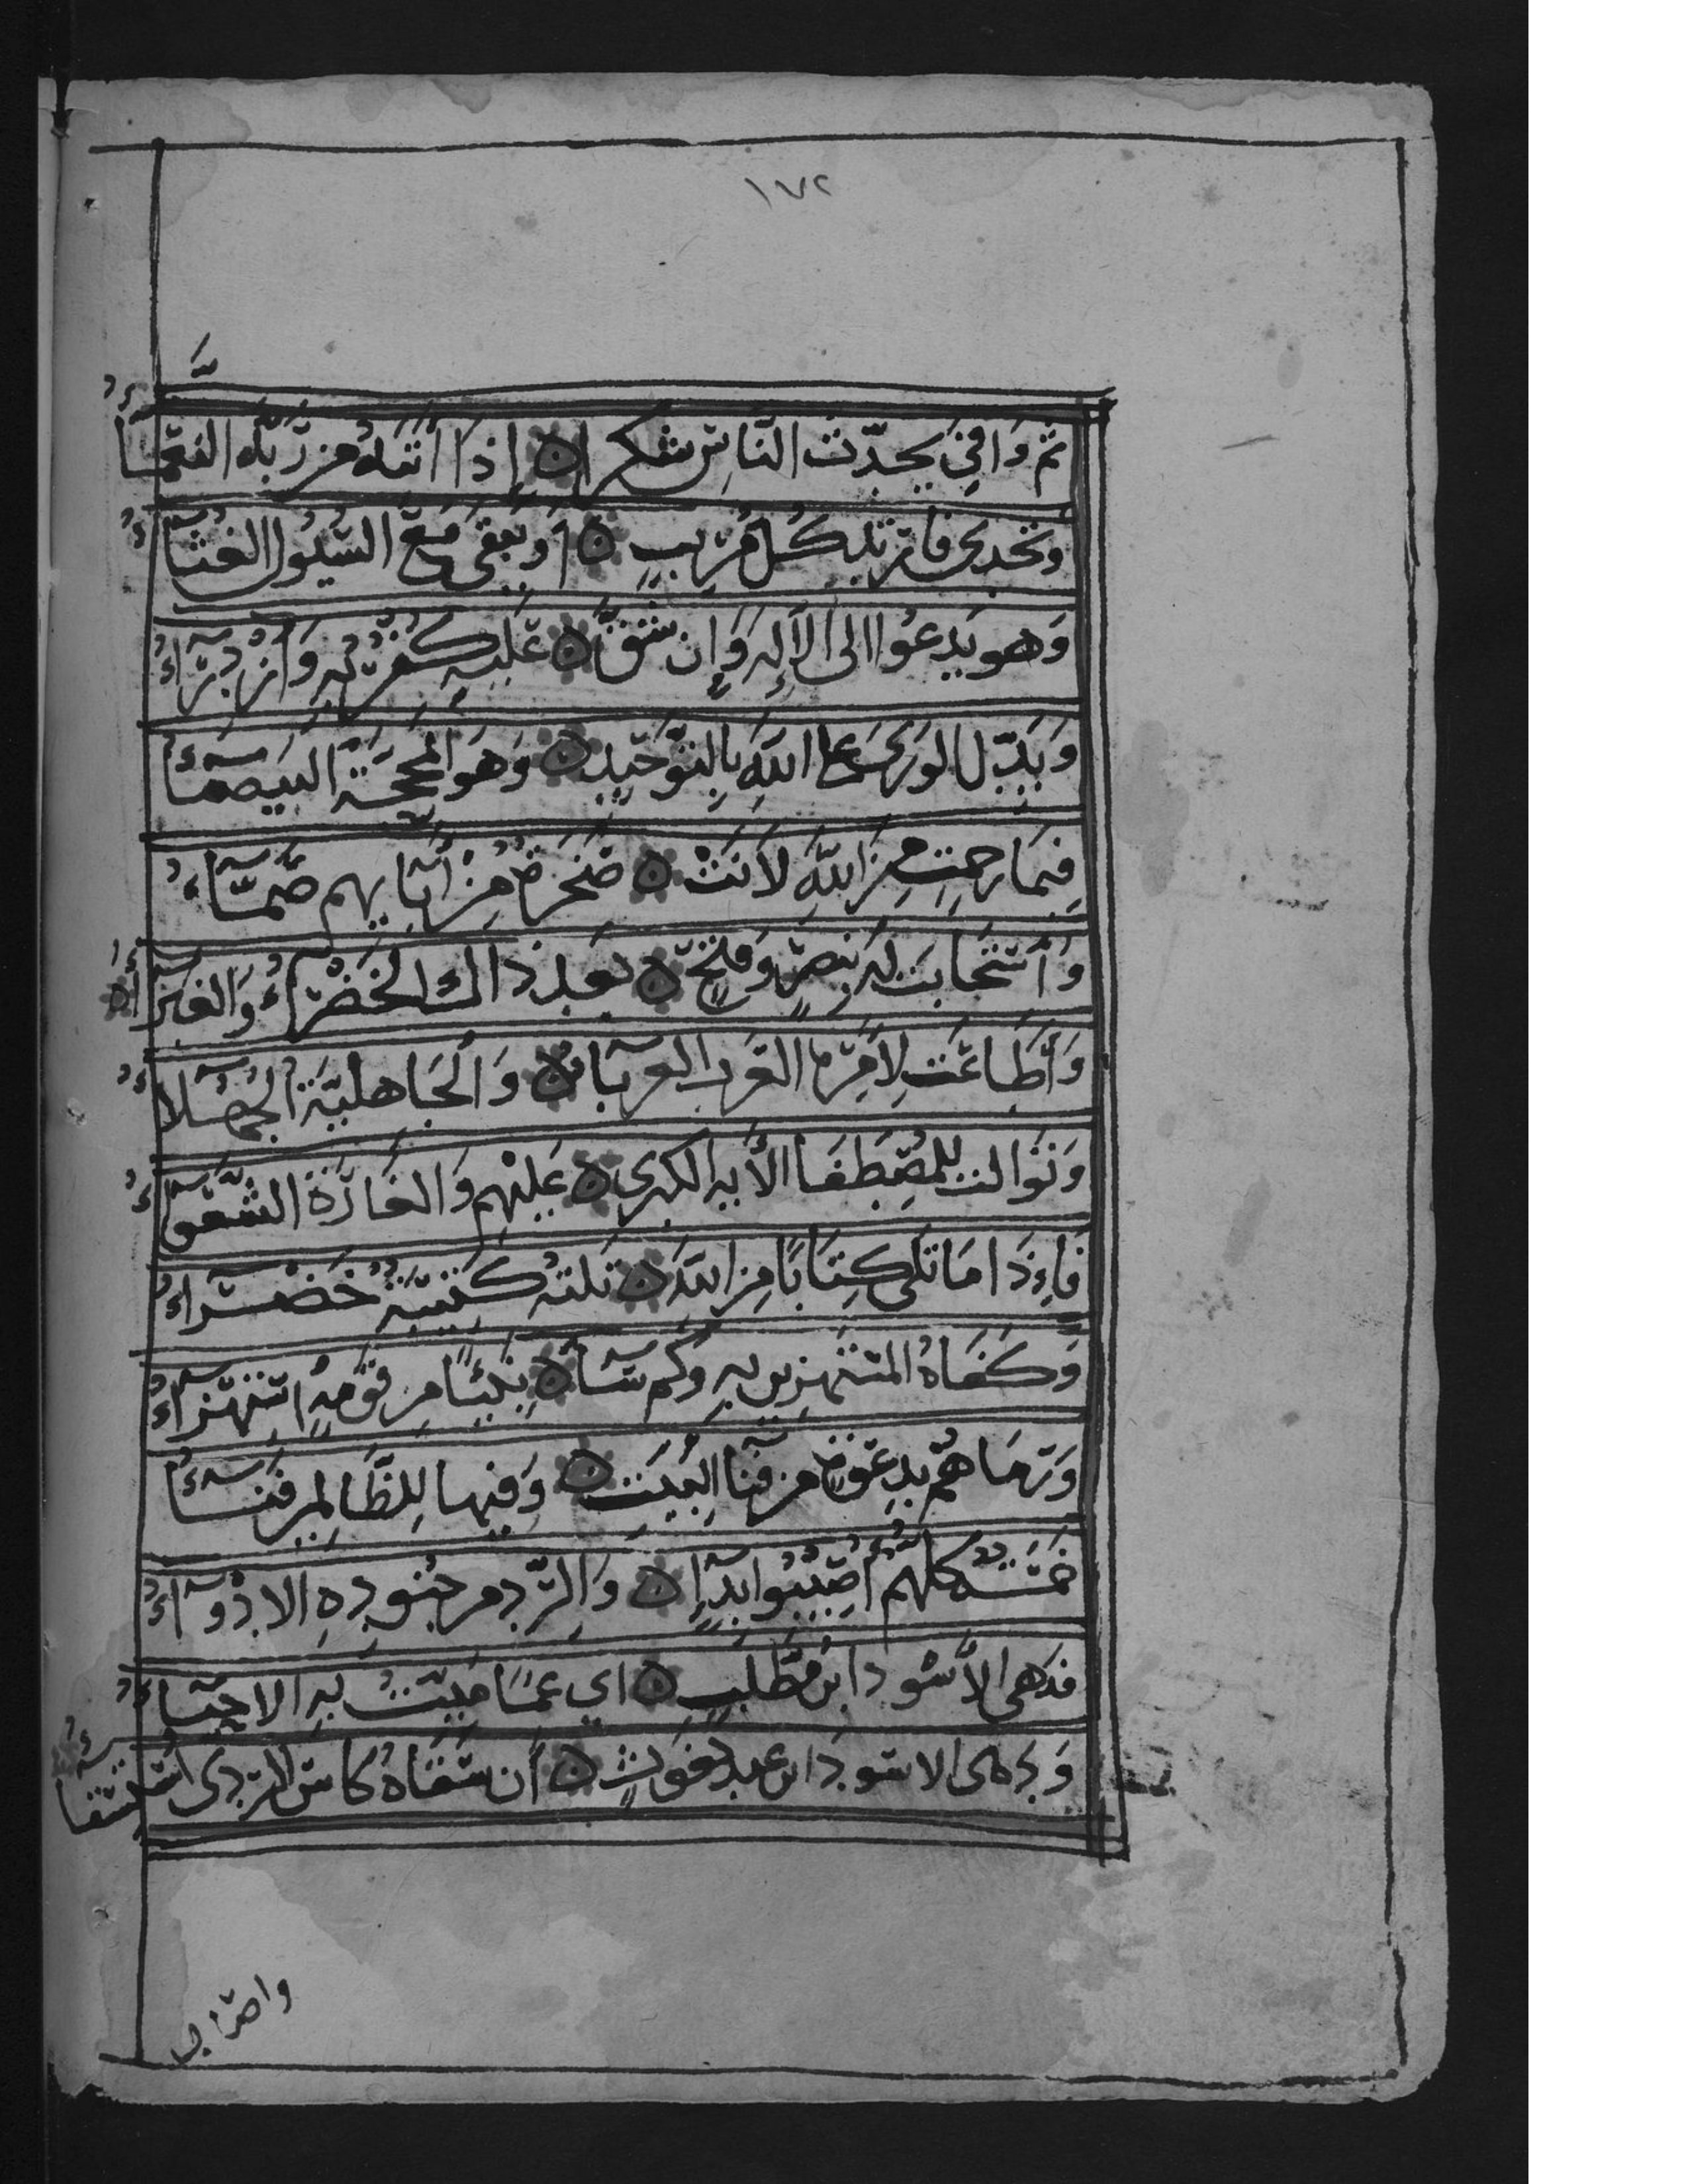 ١٧٢
ثم وَافَى يُحَدِّثُ النَّاسَ شُكْرًا ۝ إِذَا أَتَتْهُ مِن رَّبِّهِ النَّعْمَآءُ
وتحدى فارتاب كُلُّ مُرِيبٍ ۝ أَوَيَبْقَى مَعَ السُّيُولِ الْغُثَآءُ
وَهو يَدعُوا الى الْإِلَهِ وَإِن شَقَّ ۝ عَلَيْهِ كُفْرٌ بِهِ وَازْدِرَآءُ
وَيَدُلُّ الوَرَى عَلَى اللّهِ بِالتَّوحِيدِ ۝ وَهُوَ الْمَحَجَّةُ الْبَيْضَآءُ
فَبِمَا رَحْمَتٍ مِنَ اللّهِ لَانَتْ ۝ صَخْرَةٌ مِنْ إِبَآيِهِم صَمَّآءُ
وَاسْتَجَابَتْ لَهُ بِنَصْرٍ وَفَتْحٍ ۝ بَعْدَ ذَاكَ الْخَضْرَآءُ وَالغَبْرَآءُ
وَأَطَاعَتْ لِأَمْرِهِ العَرَبُ العَرْبَآءُ ۝ وَالْجَاهِلِيَّةُ الْجُهَلَآءُ
وَتَوَالَتْ لِلْمُصْطَفَا الْأَيَةُ الكُبْرى ۝ عَلَيْهِم وَالغَارَةُ الشَّعْوَآءُ
فَإِذَا مَا تَلَى كِتَابًا مِنَ اللّهِ ۝ تَلَتْهُ كَتِيبَةٌ خَضْرَآءُ
وَكَفَاهُ الْمُسْتَهْزِئِينَ بِهِ وَكَم سَآءَ ۝ نَبِيًّا مِن قَوْمِهِ اسْتِهْزَآءُ
وَرَمَاهُم بِدَعْوَةٍ مِن فِنَآ الْبَيْتِ ۝ وَفِيهَا لِلظَّالِمِينَ فَنَآءُ
خَمْسَةٌ كُلُّهُم أُصِيبُوا بِدَآءٍ ۝ وَالرَّدَى مِن جُنُودِهِ الادْوَآءُ
فدَهى الْأَسْوَدَ ابْنَ مُطَّلِبٍ ۝ اي عَمًا مَيِّتٌ بِهِ الاحْيَآءُ
وَدَهَى الاسْوَدَ ابنَ عبد يَغُوثٍ ۝ أَن سَقَاهُ كَاسَ الرَّدَى اسْتِسْقَآءُ
واصاب